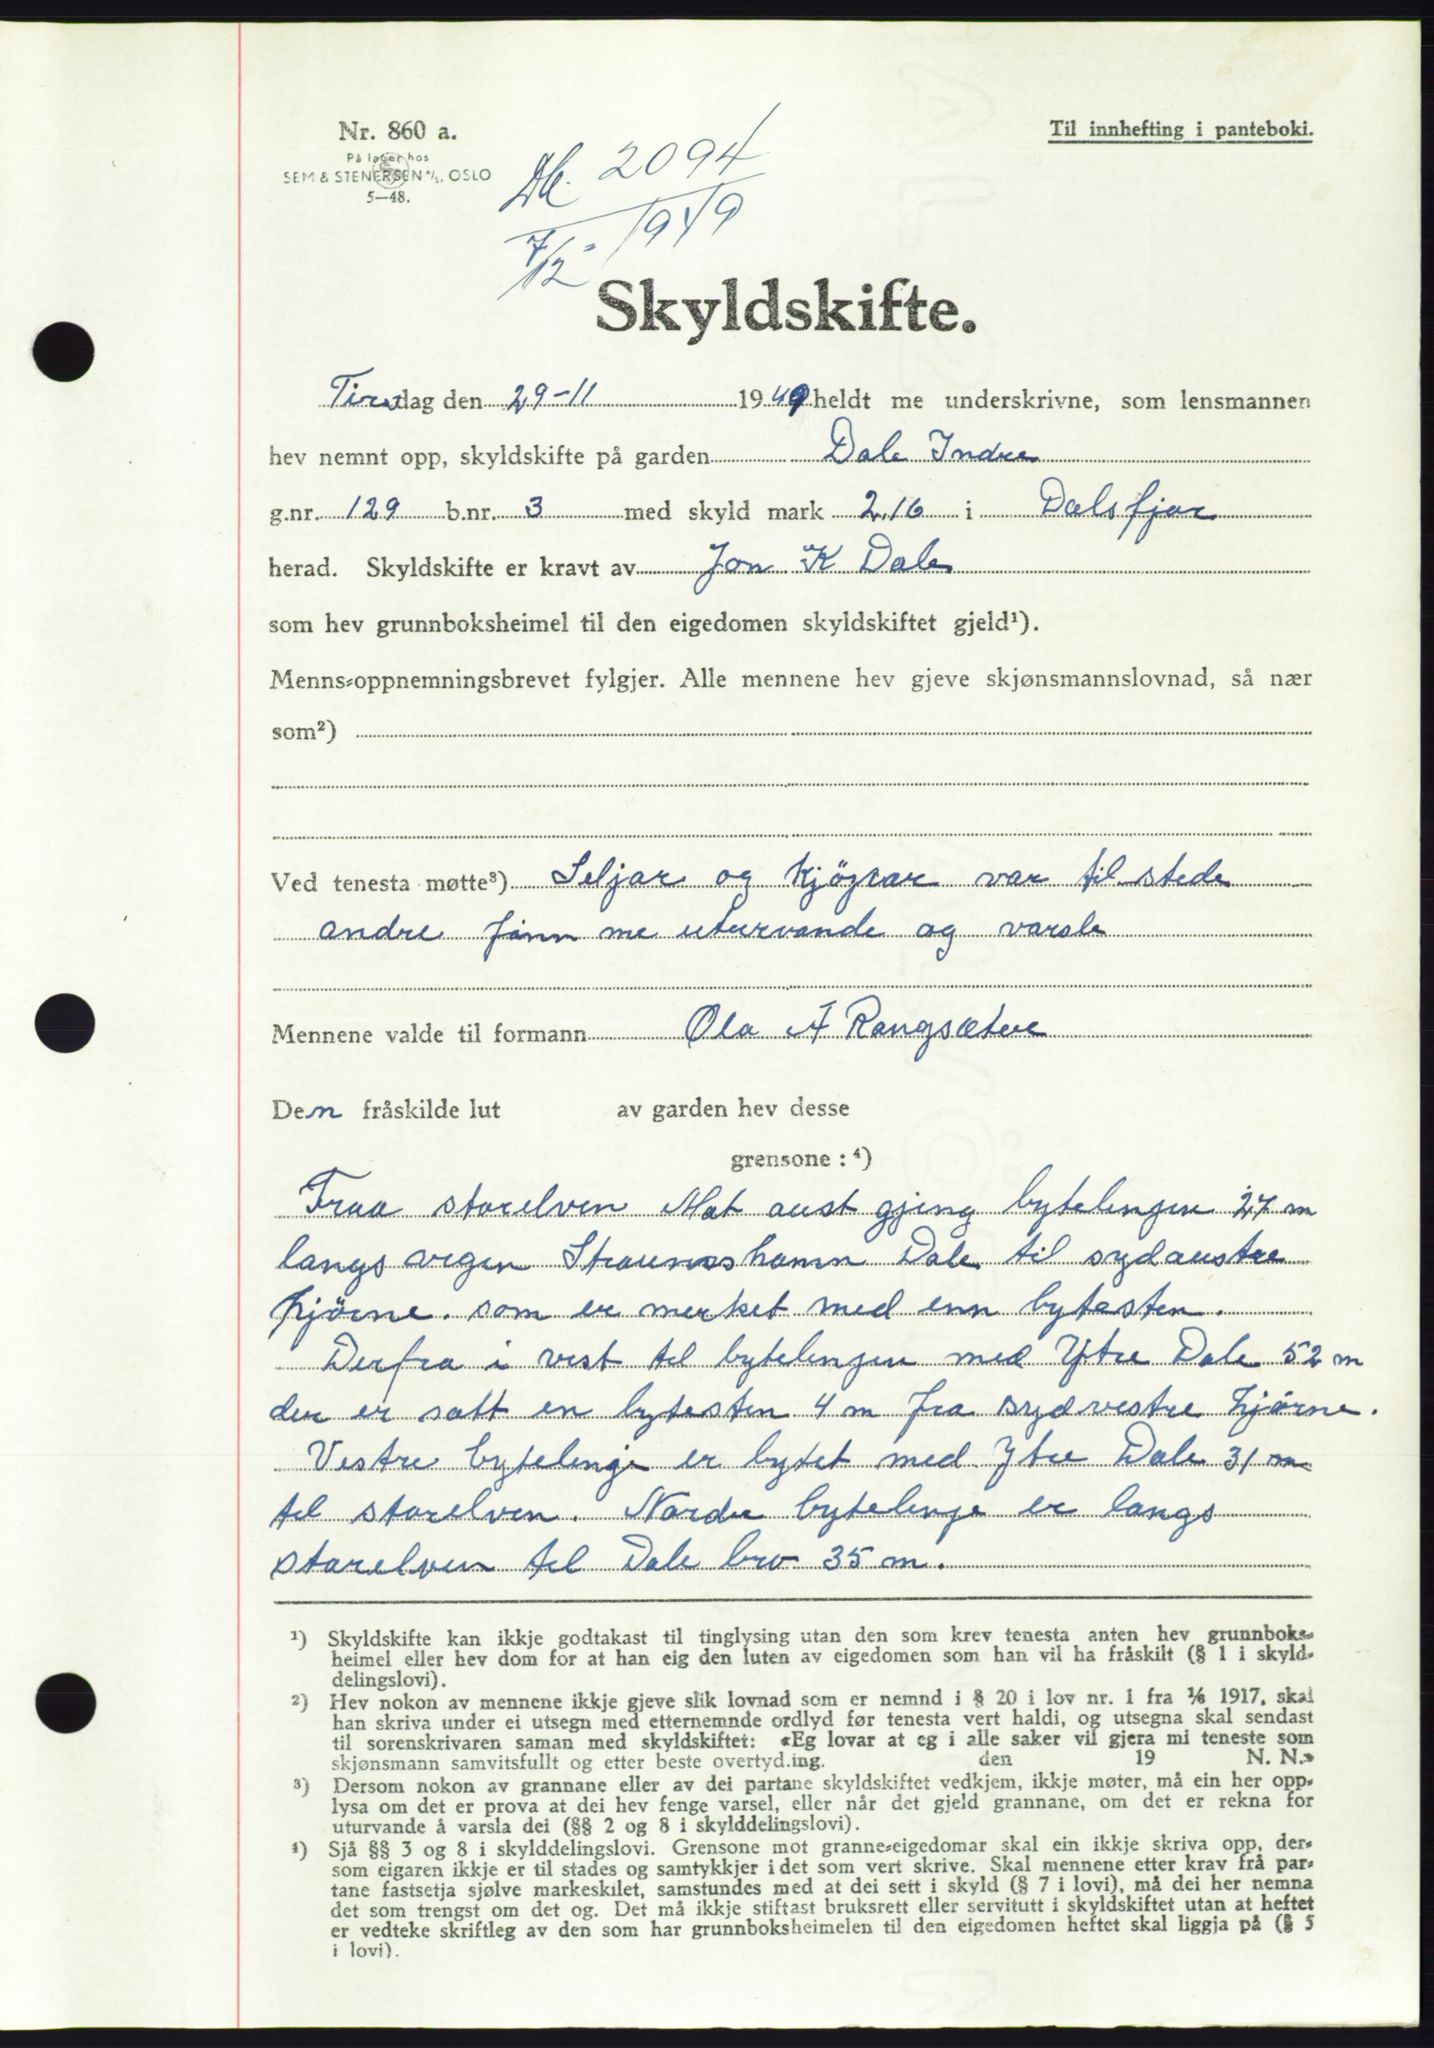 Nr. 860 a.
På lager hos
SEM & STENERSEN A/S. OSLO
5—48.
Til innhefting i panteboki.
Db. 2094
7/12 - 1949
Skyldskifte.
Tirsdag den 29-11 1949 heldt me underskrivne, som lensmannen
hev nemnt opp, skyldskifte på garden Dale Indre
g.nr. 129 b.nr. 3 med skyld mark 2.16 i Dalsfjor
herad. Skyldskifte er kravt av Jon K Dale
som hev grunnboksheimel til den eigedomen skyldskiftet gjeld¹).
Menns-oppnemningsbrevet fylgjer. Alle mennene hev gjeve skjønsmannslovnad, så nær
som²)
Ved tenesta møtte³) Seljar og kjöpar var til stede
andre fann me uturvande og varsle
Mennene valde til formann Ola A Rangsæter
Den fråskilde lut av garden hev desse
grensone: ⁴)
Fraa storelven Mot aust gjeng bytelengen 27 m
langs vegen Straumshamn Dale til sydaustre
hjørne. som er merket med enn bytesten.
Derfra i vest til bytelengen med Ytre Dale 52 m
der er satt en bytesten 4 m fra sydvestre hjørne.
Vestre bytelenge er bytet med Ytre Dale 31 m
til storelven. Nordre bytelenge er langs
storelven til Dale bro 35 m.
¹) Skyldskifte kan ikkje godtakast til tinglysing utan den som krev tenesta anten hev grunnboks-
heimel eller hev dom for at han eig den luten av eigedomen som han vil ha fråskilt (§ 1 i skyld-
delingslovi).
²) Hev nokon av mennene ikkje gjeve slik lovnad som er nemnd i § 20 i lov nr. 1 fra 1/6 1917, skal
han skriva under ei utsegn med etternemnde ordlyd før tenesta vert haldi, og utsegna skal sendast
til sorenskrivaren saman med skyldskiftet: «Eg lovar at eg i alle saker vil gjera mi teneste som
skjønsmann samvitsfullt og etter beste overtyding. den 19 N. N.»
³) Dersom nokon av grannane eller av dei partane skyldskiftet vedkjem, ikkje møter, må ein her opp-
lysa om det er prova at dei hev fenge varsel, eller når det gjeld grannane, om det er rekna for
uturvande å varsla dei (§§ 2 og 8 i skylddelingslovi).
⁴) Sjå §§ 3 og 8 i skylddelingslovi. Grensone mot granne-eigedomar skal ein ikkje skriva opp, der-
som eigaren ikkje er til stades og samtykkjer i det som vert skrive. Skal mennene etter krav frå par-
tane fastsetja sjølve markeskilet, samstundes med at dei sett i skyld (§ 7 i lovi), må dei her nemna
det som trengst om det og. Det må ikkje stiftast bruksrett eller servitutt i skyldskiftet utan at heftet
er vedteke skriftleg av den som har grunnboksheimelen til den eigedomen heftet skal liggja på (§ 5
i lovi).